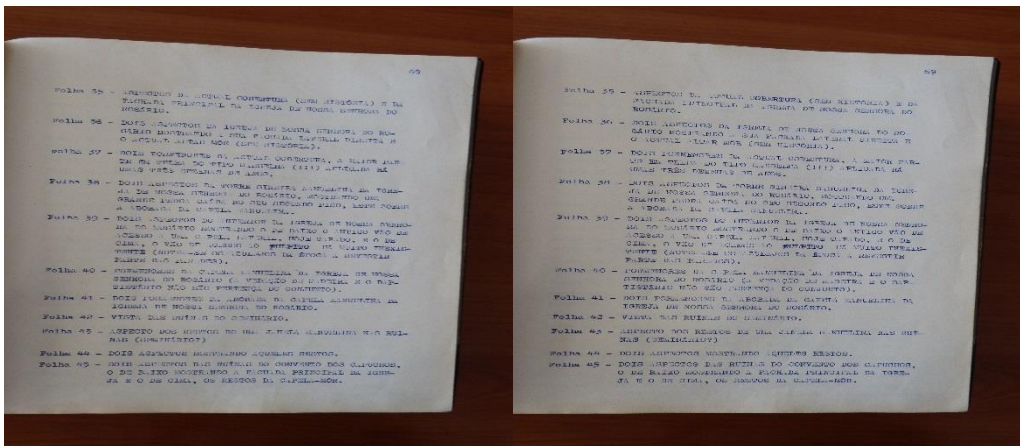 69
Folha 35 - ASPECTOS DA ACTUAL COBERTURA (SEM HISTÓRIA) E DA
FACHADA PRINCIPAL DA IGREJA DE NOSSA SENHORA DO
ROSÁRIO.
Folha 36 - DOIS ASPECTOS DA IGREJA DE NOSSA SENHORA DO RO-
SÁRIO MOSTRANDO A SUA FACHADA LATERAL DIREITA E
O ACTUAL ALTAR MOR (SEM HISTÓRIA).
Folha 37 - DOIS PORMENORES DA ACTUAL COBERTURA, A MAIOR PAR-
TE EM TELHA DO TIPO MARSELHA (!!!) APLICADA HÁ
UMAS TRÊS DEZENAS DE ANOS.
Folha 38 - DOIS ASPECTOS DA TORRE SINEIRA MANUELINA DA IGRE-
JA DE NOSSA SENHORA DO ROSÁRIO, MOSTRANDO UMA
GRANDE PEDRA CAÍDA DO SEU SEGUNDO PISO, SOBRE
A ABÓBADA DA CAPELA MANUELINA.
Folha 39 - DOIS ASPECTOS DO INTERIOR DA IGREJA DE NOSSA SENHO-
RA DO ROSÁRIO MOSTRANDO O DE BAIXO O ANTIGO VÃO DE
ACESSO A UMA CAPELA LATERAL, HOJE TAPADO, E O DE
CIMA, O VÃO DE ACESSO AO PÚLPITO
PARTE DAS
Folha 40 - PORMENORES DA CAPELA MANUELINA DA IGREJA DE NOSSA
SENHORA DO ROSÁRIO (A VEDAÇÃO DE MADEIRA E O BAP-
TISTÉRIO NÃO SÃO PERTENÇA DO CONJUNTO).
Folha 41 - DOIS PORMENORES DA ABÓBADA DA CAPELA MANUELINA DA
IGREJA DE NOSSA SENHORA DO ROSÁRIO.
Folha 42 - VISTA DAS RUÍNAS DO SEMINÁRIO.
Folha 43 - ASPECTO DOS RESTOS DE UMA JANELA MANUELINA NAS RUÍ-
NAS (SEMINÁRIO?)
Folha 44 - DOIS ASPECTOS MOSTRANDO AQUELES RESTOS.
Folha 45 - DOIS ASPECTOS DAS RUÍNAS DO CONVENTO DOS CAPUCHOS,
O DE BAIXO MOSTRANDO A FACHADA PRINCIPAL DA IGRE-
JA E O DE CIMA, OS RESTOS DA CAPELA-MÓR.
69
Folha 35 - ASPECTOS DA ACTUAL COBERTURA (SEM HISTÓRIA) E DA
FACHADA PRINCIPAL DA IGREJA DE NOSSA SENHORA DO
ROSÁRIO.
Folha 36 - DOIS ASPECTOS DA IGREJA DE NOSSA SENHORA DO RO-
SÁRIO MOSTRANDO A SUA FACHADA LATERAL DIREITA E
O ACTUAL ALTAR MOR (SEM HISTÓRIA).
Folha 37 - DOIS PORMENORES DA ACTUAL COBERTURA, A MAIOR PAR-
TE EM TELHA DO TIPO MARSELHA (!!!) APLICADA HÁ
UMAS TRÊS DEZENAS DE ANOS.
Folha 38 - DOIS ASPECTOS DA TORRE SINEIRA MANUELINA DA IGRE-
JA DE NOSSA SENHORA DO ROSÁRIO, MOSTRANDO UMA
GRANDE PEDRA CAÍDA DO SEU SEGUNDO PISO, SOBRE
A ABÓBADA DA CAPELA MANUELINA.
Folha 39 - DOIS ASPECTOS DO INTERIOR DA IGREJA DE NOSSA SENHO-
RA DO ROSÁRIO MOSTRANDO O DE BAIXO O ANTIGO VÃO DE
ACESSO A UMA CAPELA LATERAL, HOJE TAPADO, E O DE
CIMA, O VÃO DE ACESSO AO PÚLPITO
PARTE DAS
Folha 40 - PORMENORES DA CAPELA MANUELINA DA IGREJA DE NOSSA
SENHORA DO ROSÁRIO (A VEDAÇÃO DE MADEIRA E O BAP-
TISTÉRIO NÃO SÃO PERTENÇA DO CONJUNTO).
Folha 41 - DOIS PORMENORES DA ABÓBADA DA CAPELA MANUELINA DA
IGREJA DE NOSSA SENHORA DO ROSÁRIO.
Folha 42 - VISTA DAS RUÍNAS DO SEMINÁRIO.
Folha 43 - ASPECTO DOS RESTOS DE UMA JANELA MANUELINA NAS RUÍ-
NAS (SEMINÁRIO?)
Folha 44 - DOIS ASPECTOS MOSTRANDO AQUELES RESTOS.
Folha 45 - DOIS ASPECTOS DAS RUÍNAS DO CONVENTO DOS CAPUCHOS,
O DE BAIXO MOSTRANDO A FACHADA PRINCIPAL DA IGRE-
JA E O DE CIMA, OS RESTOS DA CAPELA-MÓR.